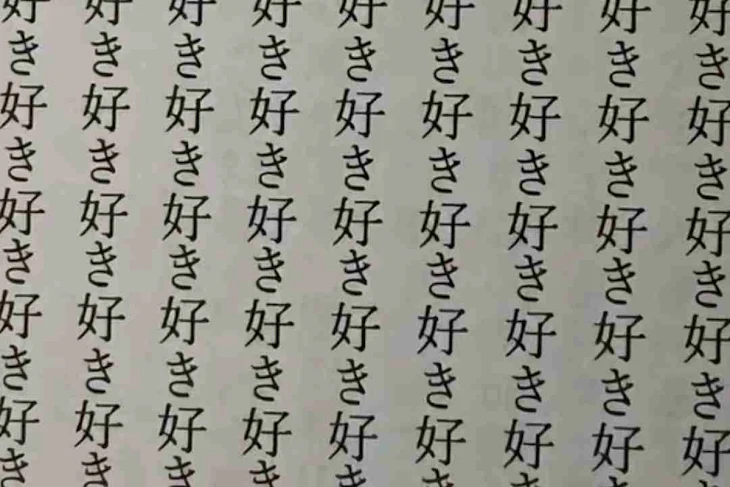 好き好き好き好き好き
好き好き好き好き好き
好き好き好き好き好き
好き好き好き好き好き
好き好き好き好き好き
好き好き好き好き好き
好き好き好き好き好き
好き好き好き好き好き
好き好き好き好き好き